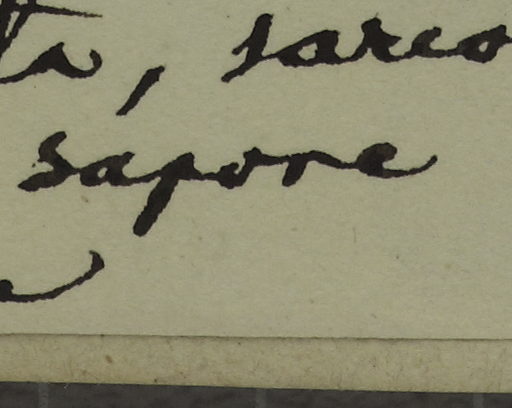 ta, sarco
sapore